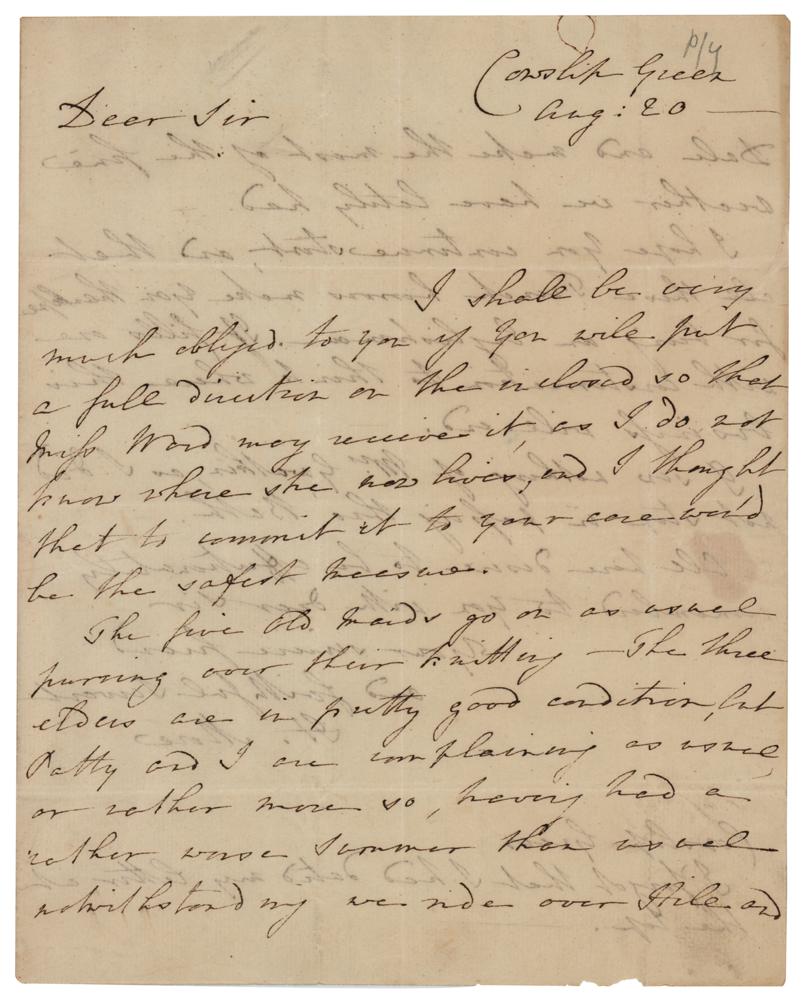 p/4
Cowslip Green
Aug: 20 —
Dear Sir
I shall be very
much obliged to you if you will put
a full direction on the inclosed so that
Miss Ward may receive it, as I do not
know where she now lives, and I thought
that to commit it to your care wou'd
be the safest measure.
The five Old Maids go on as usual
purring over their knitting — The three
elders are in pretty good condition, but
Patty and I are complaining as usual,
or rather more so, having had a
rather worse Summer than usual
notwithstanding we ride over Hill and